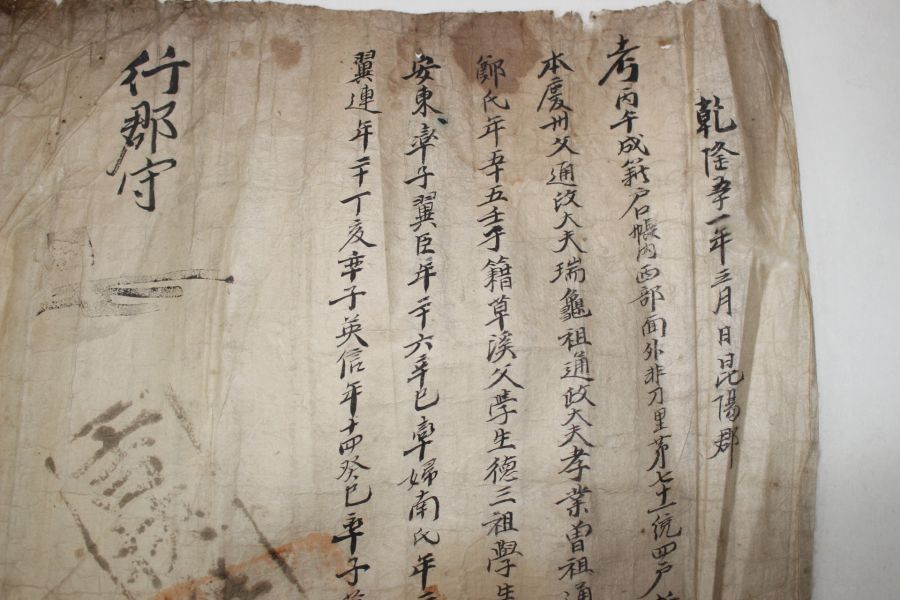 乾隆五十一年三月日昆陽郡
考丙午成籍戶口帳內西部面外非刀里第七十一統四戶
本慶州父通政大夫瑞龜祖通政大夫孝業曽祖通
鄭氏年五十五壬子籍草溪父學生德三祖學生
安東率子翼臣年二十六辛巳率婦南氏年二
翼連年二十丁亥率子英信年十四癸巳率子
行郡守